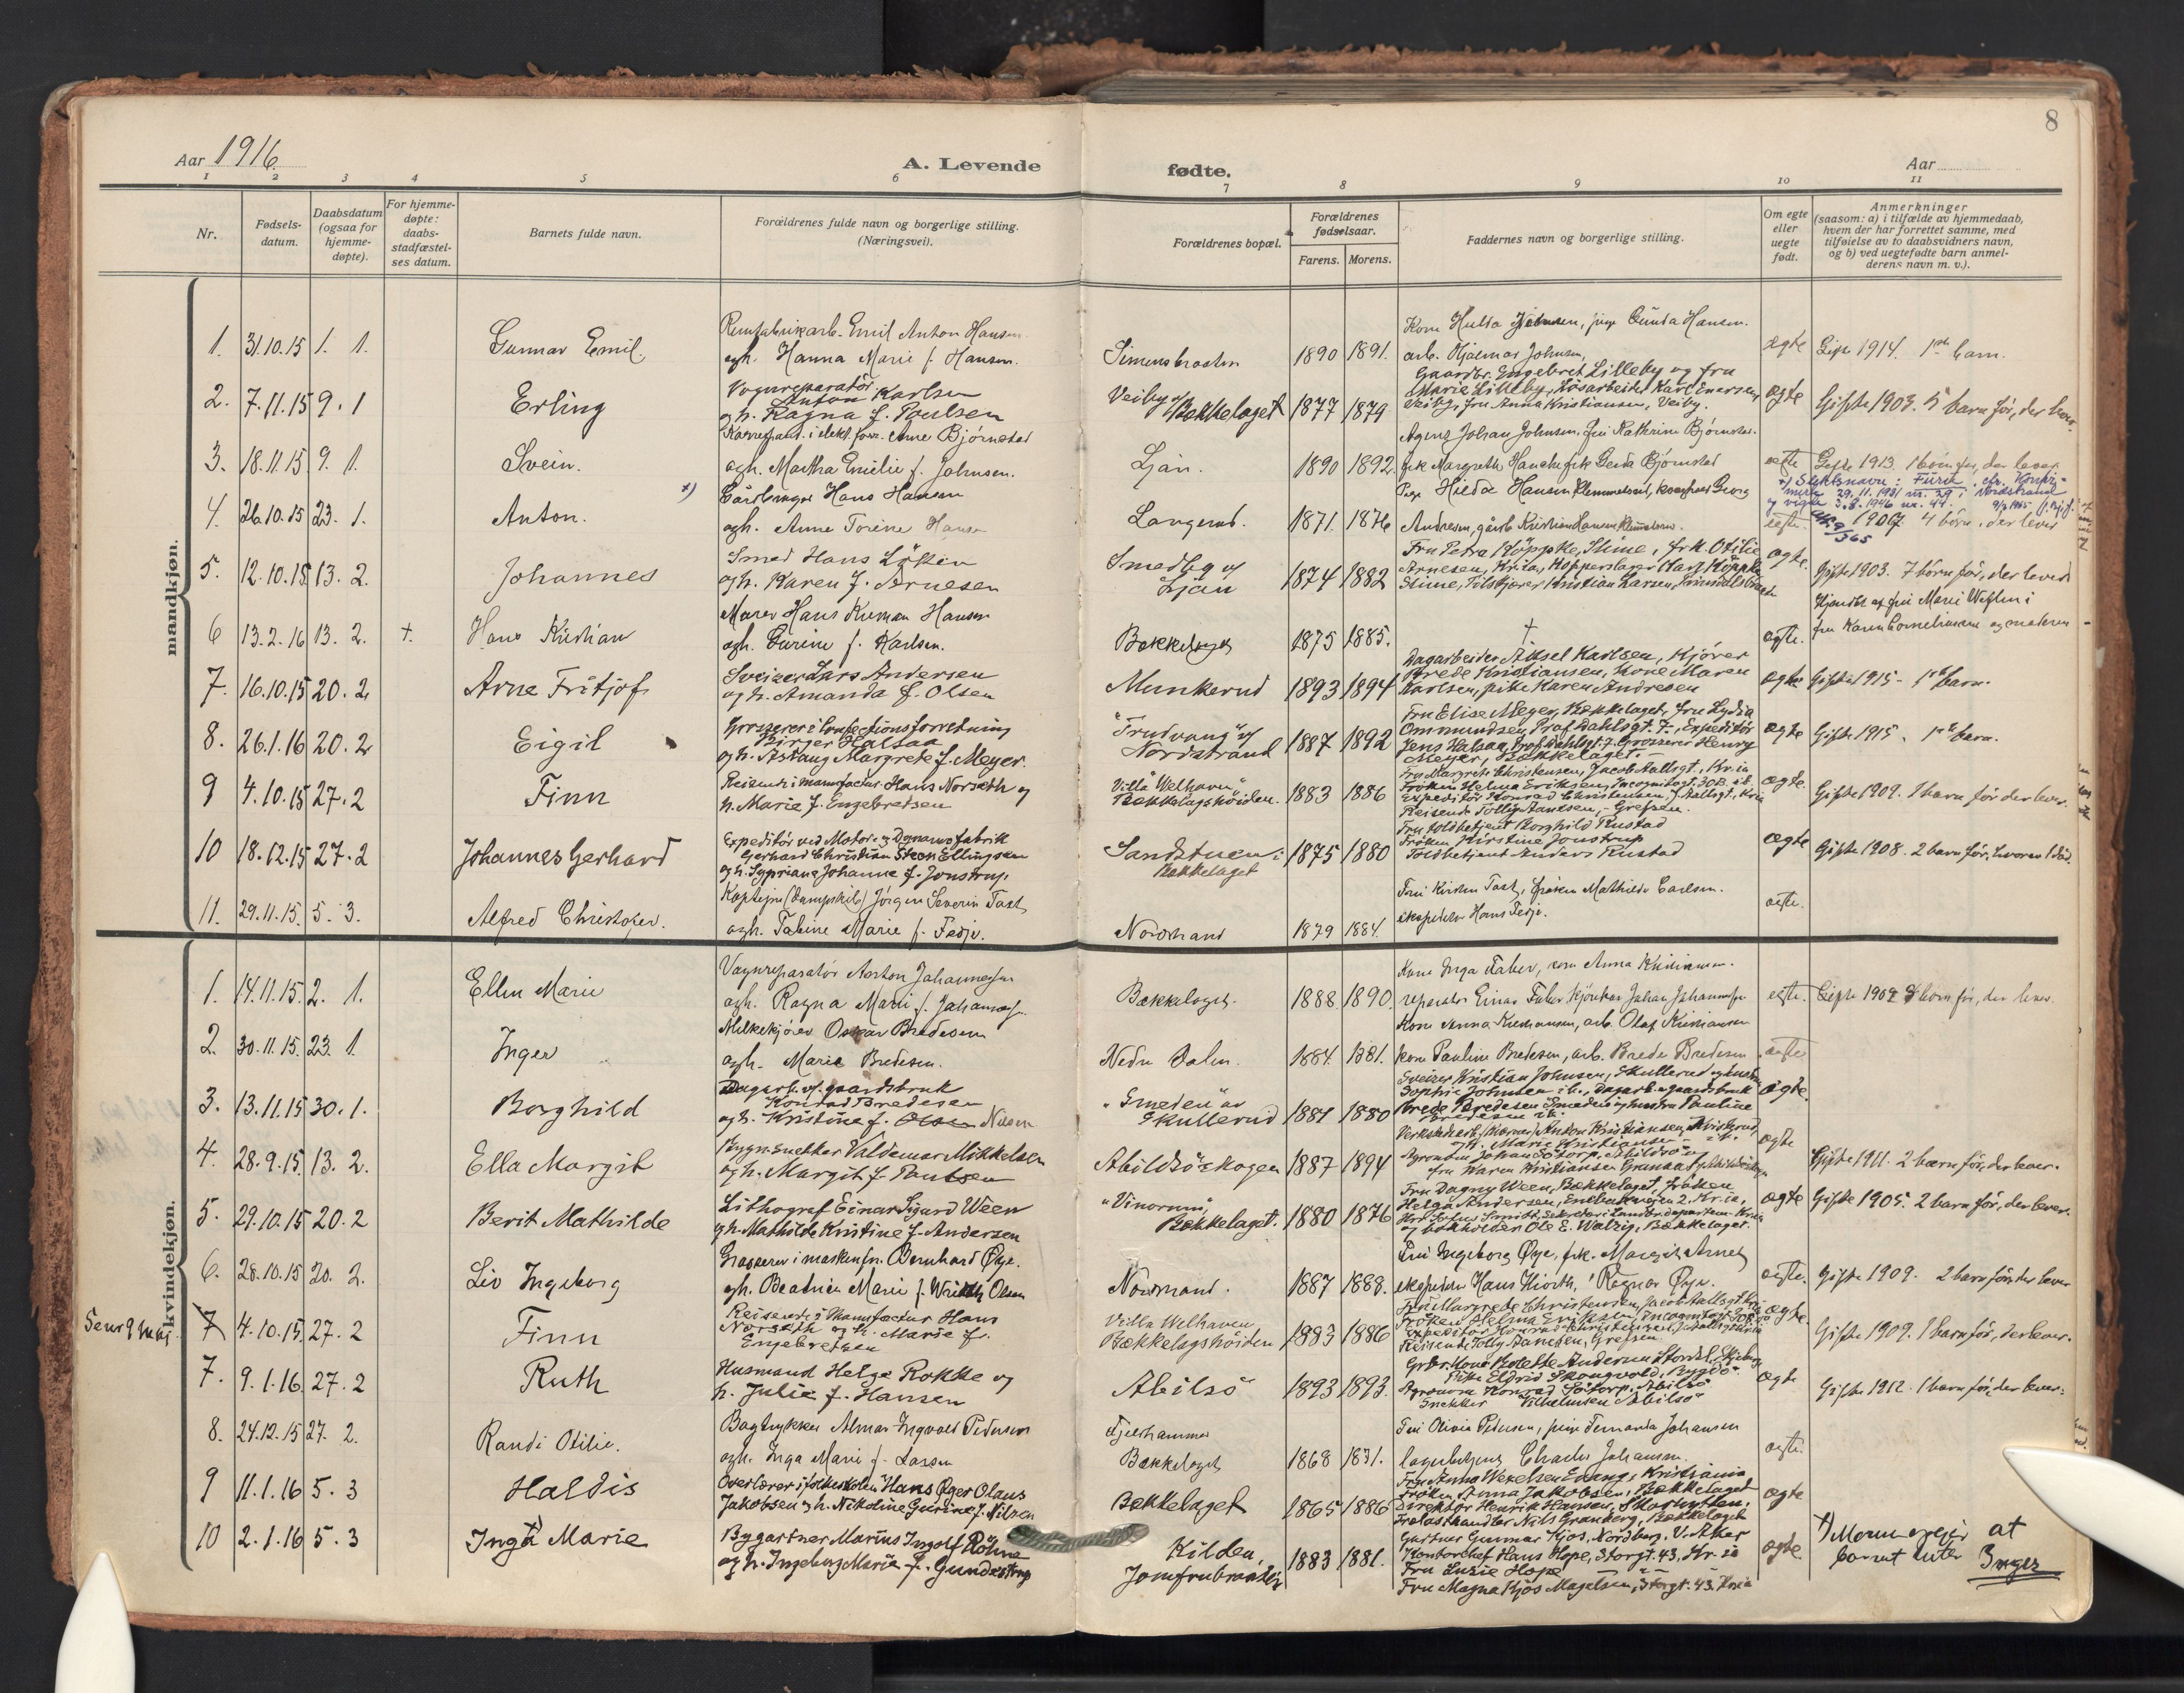 8
Aar 1916.
A. Levende
fødte.
Aar
1 2 3 4 5 6 7 8 9 10 11
Nr.
Fødsels-
datum.
Daabsdatum
(ogsaa for
hjemme-
døpte).
For hjemme-
døpte:
daabs-
stadfæstel-
ses datum.
Barnets fulde navn.
Forældrenes fulde navn og borgerlige stilling.
(Næringsvei).
Forældrenes bopæl.
Forældrenes
fødselsaar.
Farens. Morens.
Faddernes navn og borgerlige stilling.
Om egte
eller
uegte
født.
Anmerkninger
(saasom: a) i tilfælde av hjemmedaab,
hvem der har forrettet samme, med
tilføielse av to daabsvidners navn,
og b) ved uegtefødte barn anmel-
derens navn m. v.).
mandkjøn.
1. 31.10.15 1. 1. Gunnar Emil.
Emil Anton Hansen
ogh. Hanna Marie f. Hansen.
Simensbraaten 1890 1891.
Kone Hulda Johnsen, pige Gunda Hansen.
arb. Hjalmar Johnsen,
egte Gifte 1914. 1ste barn.
2. 7.11.15 9. 1 Erling
Vognreparatör
Anton Karlsen
og h. Ragna f. Poulsen
Veiby
Bekkelaget 1877 1879
Gaardbr. Engebret Lilleby og fru
Marie Lilleby, Løsarbeider Karl Enersen,
Veiby, fru Anna Kristiansen, Veiby.
ægte Gifte 1903. 5 barn før, der lever.
3. 18.11.15 9. 1. Svein.
Arne Bjørnstad
ogh. Martha Emilie f. Johnsen.
Ljan. 1890 1892.
Agent Johan Johnsen, fru Kathrine Bjørnstad.
frk Margrethe Hauch, frk Gerda Bjørnstad
egte Gifte 1913. 1 barn før, der lever
4. 26.10.15 23. 1. Anton. +)
Gårdbruger Hans Hansen
ogh. Anne Torine Hansen
Langerud. 1871. 1876
Pige Hilda Hansen Klemmetsrud,
Andresen, gårb. Kristian Hansen Klemmetsrud.
egte.
+) Slektsnavn: Furu, cfr. Konfir-
mirte 29.11.1931 nr. 29 i Nordstrand
og vigde 3.8.1946 nr. 44.
1907 4 børn, der lever
5. 12.10.15 13. 2. Johannes
Smed Hans Löken
og h. Karen f. Arnesen
Smedby
Ljan 1874 1882
Fru Petra Köppke, Stime, frk. Otilie
Arnesen, Kr.ia, Kopperslager Karl Köppke
Stime, Kristian Larsen,
ægte. Gifte 1903. 7 børn før, der lever
6 13.2.16 13. 2. +. Hans Kristian
Murer Hans Herman Hansen
ogh. Gurine f. Karlsen.
Bekkelaget 1875 1885.
+
egte.
Hjemdbt. af fru Marie Weflen i
fru Karen Corneliussens og moderen
7. 16.10.15 20. 2 Arne Fritjof
Sveizer Lars Andersen
og h. Amanda f. Olsen
Munkerud 1893 1894
Dagarbeider Aksel Karlsen, Kjörer
Brede Kristiansen, Kone Maren
Karlsen, pike Karen Andresen
ægte Gifte 1915 - 1ste barn.
8. 26.1.16 20. 2 Eigil
Grosserer i Confectionsforretning
Birger Halsaa
og h. Astaug Margrete f. Meyer.
"Trudvang"
Nordstrand 1887 1892
Fru Elise Meyer, Bækkelaget, fru Lydia
Ommundsen, Prof. Dahlsgt. 7., Expeditör
Jens Halsaa, Prof. Dahlsgt. 7. Grosserer Henry
Meyer, Bækkelaget
ægte Gifte 1915. 1ste barn.
9 4.10.15 27. 2 Finn
Reisende i manufactur Hans Norseth og
h. Marie f. Engebretsen
Villa "Welhaven"
Bækkelagshöiden. 1883 1886
Fru Margrete Christensen, Jacob Aallsgt., Kr.ia
Fröken Helma Eriksen, Incognitogt. 30B. ib.
Expeditör Konrad Christensen, J. Aallsgt., Kr.ia
Reisende Tolly Aanesen, Grefsen.
ægte. Gifte 1909. 1 barn før der lever.
10 18.12.15 27. 2 Johannes Gerhard
Expeditör ved Motor- og Dynamofabrik
Gerhard Christian Steen Ellingsen
og h. Sypriane Johanne f. Jonstrup.
Sandstuen i
Bækkelaget 1875 1880
Fru toldbetjent Borghild Rustad
Fröken Kirstine Jonstrup
Toldbetjent Anders Rustad
ægte Gifte 1908. 2 barn før, hvorav 1 död.
11. 29.11.15. 5. 3. Alfred Christofer.
Kaptejn (Dampskib) Jörgen Severin Tast
ogh. Tabine Marie f. Fedje.
Nordstrand 1879 1884.
Fru Kirsten Tast, frøken Mathilde Carlsen.
ekspeditør Hans Fedje.
egte.
kvindekjøn.
1. 14.11.15. 2. 1. Ellen Marie
Vognreparatør Anton Johannessen
ogh. Ragna Marie f. Johannessen.
Bækkelaget. 1888. 1890.
Kone Inga Faber, kone Anna Kristiansen.
reparatør Einar Faber Johan Johannessen
egte. Gifte 1909 børn før, der lever.
2. 30.11.15. 23. 1. Inger
Melkekjører Oskar Bredesen
ogh. Marie Bredesen.
Nedre Dalen. 1884. 1881.
Kone Anna Kristiansen, arb. Olaf Kristiansen
kone Pauline Bredesen, arb. Brede Bredesen
egte
3. 13.11.15 30. 1. Borghild
Dagarb. v. gaardsbruk
Konrad Bredesen
og h. Kristine f. Olsen Nilsen
"Smeden" av
Skullerud 1881 1880
Sveizer Kristian Johnsen, Skullerud og hustru
Sophie Johnsen ib., Dagarb. v. gaardsbruk
Brede Bredesen Smeden og hustru Pauline
Bredesen ib.
ægte.
4. 28.9.15. 13. 2. Ella Margit
Bygn.snekker Valdemar Mikkelsen
og h. Margit f. Paulsen
Abildsöskogen 1887 1894
Anton Kristiansen,
og h. Marie Kristiansen - ib.
Agronom Johan Sötorp, Abildsö
fru Maren Kristiansen
ægte Gifte 1911. 2 barn før, der lever.
5. 29.10.15 20. 2 Berit Mathilde
Lithograf Einar Sigard Ween
og h. Mathilde Kristine f. Andersen
"Vinorum",
Bækkelaget. 1880 1876
Fru Dagny Ween, Bækkelaget, fröken
Helga Andersen, Enebakveien 2. Kr.ia,
Smidt, Sekretær i Landbr.departem. Kr.ia
og bokholder Ole E. Walzig, Bækkelaget.
ægte Gifte 1905. 2 barn før, der lever.
6. 28.10.15 20. 2. Liv Ingeborg
Grosserer i maskinfrn. Bernhard Øye.
ogh. Beatrice Marie f. Olsen
Nordstrand. 1887 1888.
Fru Ingeborg Øye, frk. Margit Arnet
ekspeditør Hans Hiorth, Ragnar Øye.
egte. Gifte 1909. 2 barn før, der lever
Se nr 9 mkj.
7 4.10.15. 27. 2 Finn
Reisende i Manufactur Hans
Norseth og h. Marie f.
Engebretsen
Villa Welhaven
Bækkelagshöiden 1883 1886
Fru Margrede Christensen, Jacob Aallsgt. Kr.ia
Fröken Helma Eriksen, Incognitogt. 30B
Expeditör Konrad Christensen, J. Aallsgt. Kr.ia
Reisende Tolly Aanesen, Grefsen.
ægte. Gifte 1909. 1 barn før, der lever.
7. 9.1.16 27. 2 Ruth
Husmand Helge Rokke og
h. Julie f. Hansen
Abilsö 1893 1893.
Grbr. kone Bolette Andersen
Pike Eldrid Skougvold, Bygdö
Agronom Konrad Sötorp, Abilsö
Snekker Vilhelmsen Abilsö
ægte Gifte 1912. 1 barn før, der lever.
8. 24.12.15 27. 2. Randi Otilie.
Bogtrykker Almar Ingvald Pedersen
ogh. Inga Marie f. Larsen
Fjeldhammer
Bækkelaget 1868 1881.
Fru Olivia Pedersen, pige Fernanda Johansen
Charles Johansen
egte.
9 11.1.16 5. 3 Haldis
Overlærer i folkeskolen Hans Öger Olaus
Jakobsen og h. Nikoline Gurine f. Nilsen
Bækkelaget 1865 1886
Fru Anna Wexelsen Evang, Kristiania
Fröken Anna Jakobsen, Bækkelaget
Direktör Henrik Hansen, Skoghytten,
Trelasthandler Nils Granberg, Bækkelaget
ægte
10 2.1.16 5. 3 Inga +) Marie
Bygartner Marius Ingolf Röhne
og h. Ingeborg Marie f. Gundestrup
Kilden,
Jomfrubraaten 1883 1881.
Gartner Gunnar Hjos, Nordberg, V. Aker
Kontorchef Hans Hope, Storgt. 43, Kr.ia
Fru Luzie Hope — " —
Fru Magna Hjös Magelsen, Storgt. 43. Kr.ia
ægte.
+) Moren opgir at
barnet heter Inger